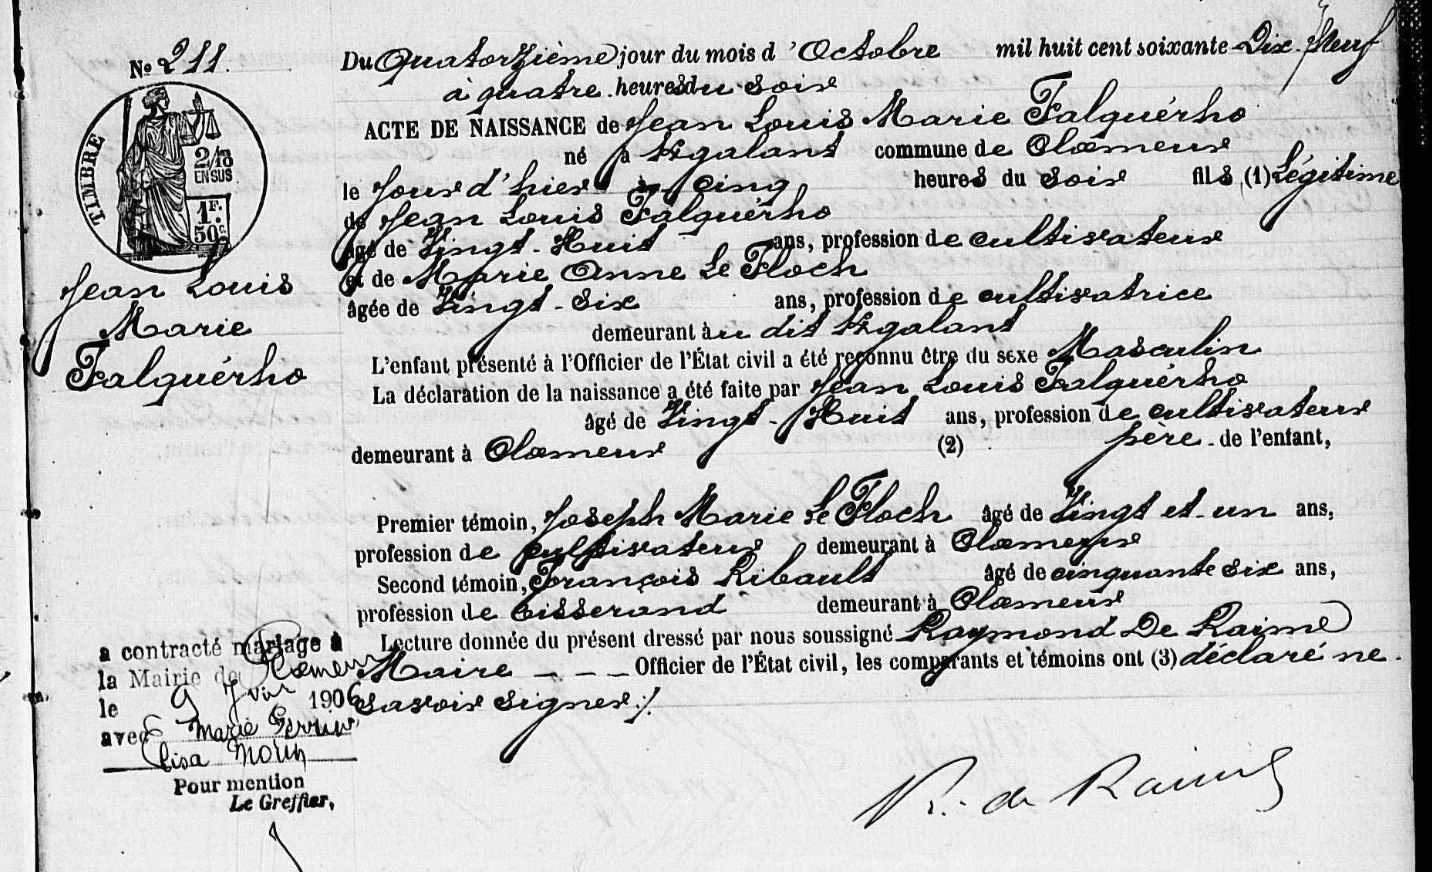 No 211.
Du Quatorzième jour du mois d'Octobre mil huit cent soixante Dix-Neuf
à quatre heures du soir
ACTE DE NAISSANCE de Jean Louis Marie Falquérho
né à Kgalant commune de Ploemeur
le Jour d'hier à cinq heures du soir fils (1) Légitime
de Jean Louis Falquérho
âgé de Vingt-Huit ans, profession de cultivateur
et de Marie Anne Le Floch
âgée de Vingt-Six ans, profession de cultivatrice
demeurant au dit Kgalant
L'enfant présenté à l'Officier de l'État civil a été reçonnu être du sexe Masculin
La déclaration de la naissance a été faite par Jean Louis Falquérho
âgé de Vingt-Huit ans, profession de cultivateur
demeurant à Ploemeur (2) père de l'enfant,
Premier témoin, Joseph Marie Le Floch âgé de Vingt et un ans,
profession de cultivateur demeurant à Ploemeur
Second témoin, François Ribault âgé de cinquante six ans,
profession de tisserand demeurant à Ploemeur
Lecture donnée du présent dressé par nous soussigné Raymond De Raime
Maire Officier de l'État civil, les comparants et témoins ont (3) déclaré ne
savoir signer ./.
R. de Raimé
TIMBRE
2/10
EN SUS
1F.
50c.
Jean Louis
Marie
Falquérho
a contracté mariage à
la Mairie de Ploemeur
le 9 1906
avec Marie
Lisa
Pour mention
Le Greffier,